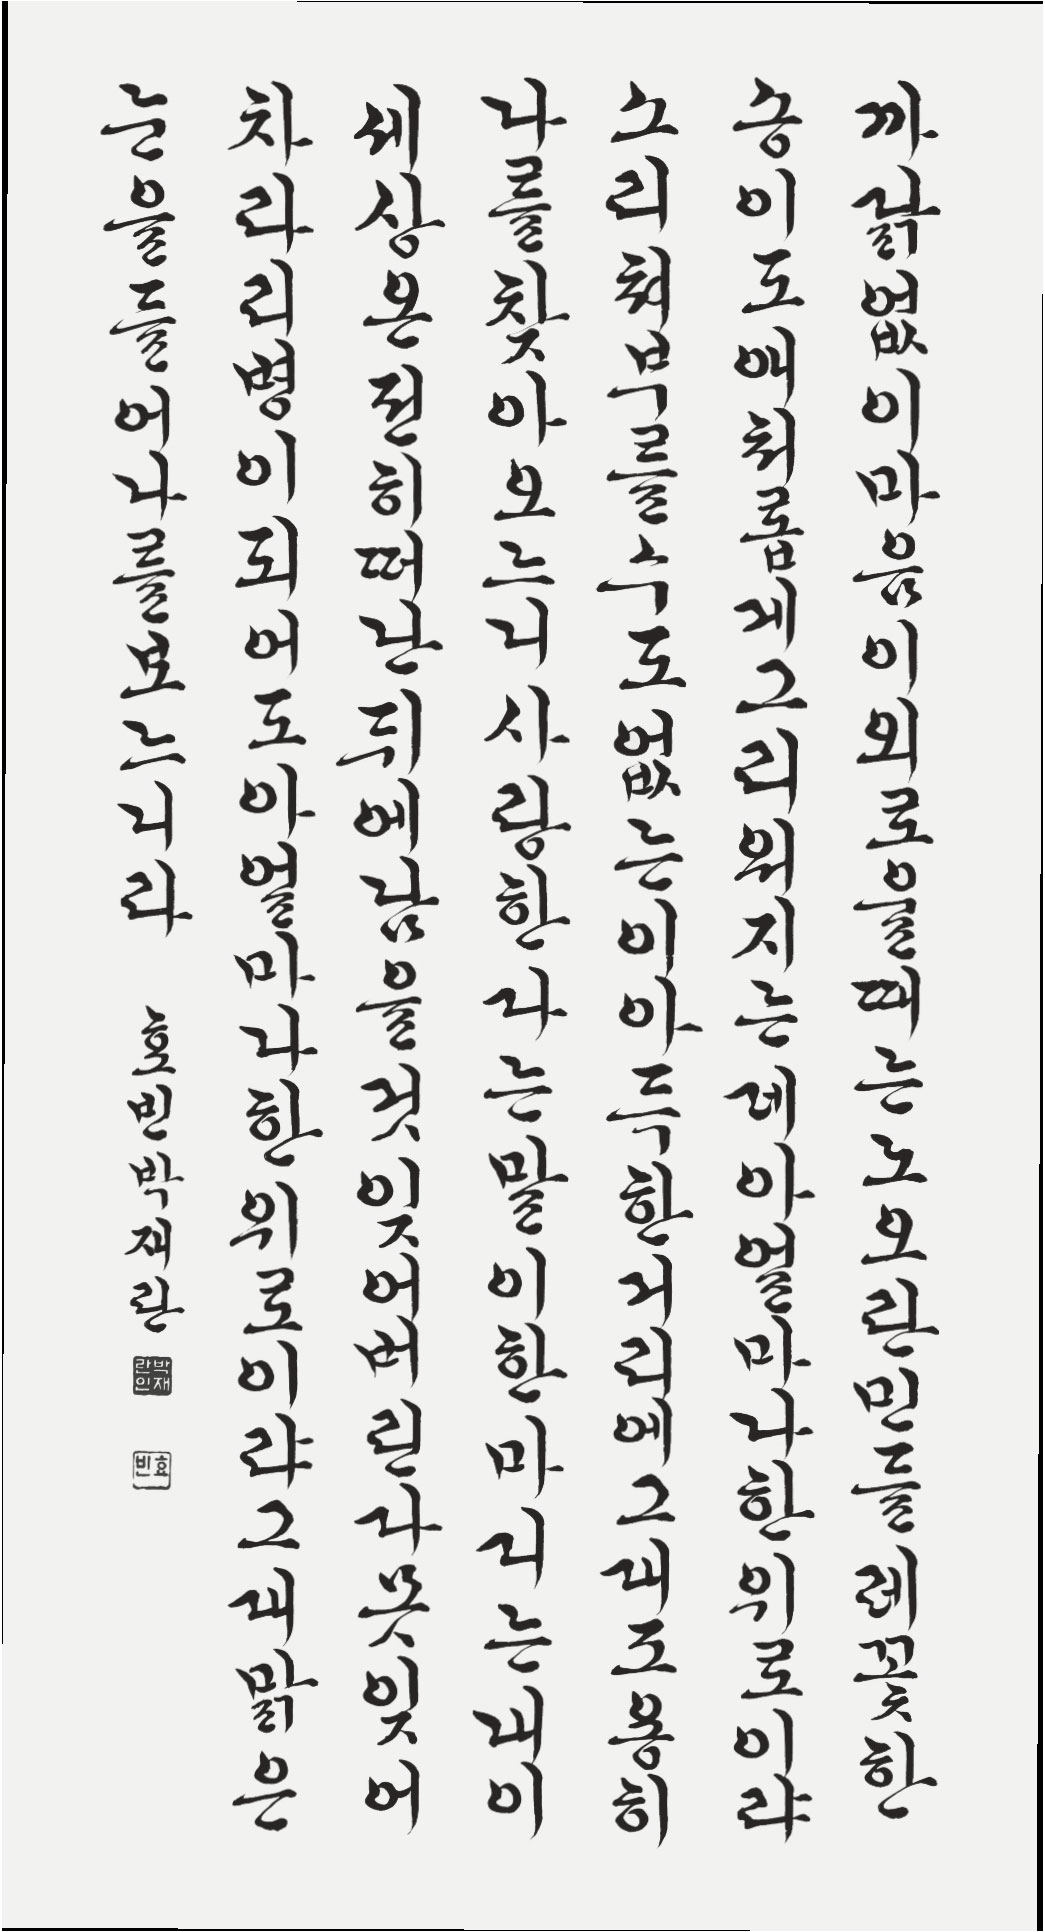 까닭없이마음이외로울때는노오란민들레꽃한
송이도애처롭게그리워지는데아얼마나한위로이랴
소리쳐부를수도없는이아득한거리에그대조용히
나를찾아오느니사랑한다는말이한마디는내이
세상온전히떠난뒤에남을것잊어버린다못잊어
차라리병이되어도아얼마나한위로이랴그대맑은
눈을들어나를보느니라 효빈박재란
박재란인
효빈